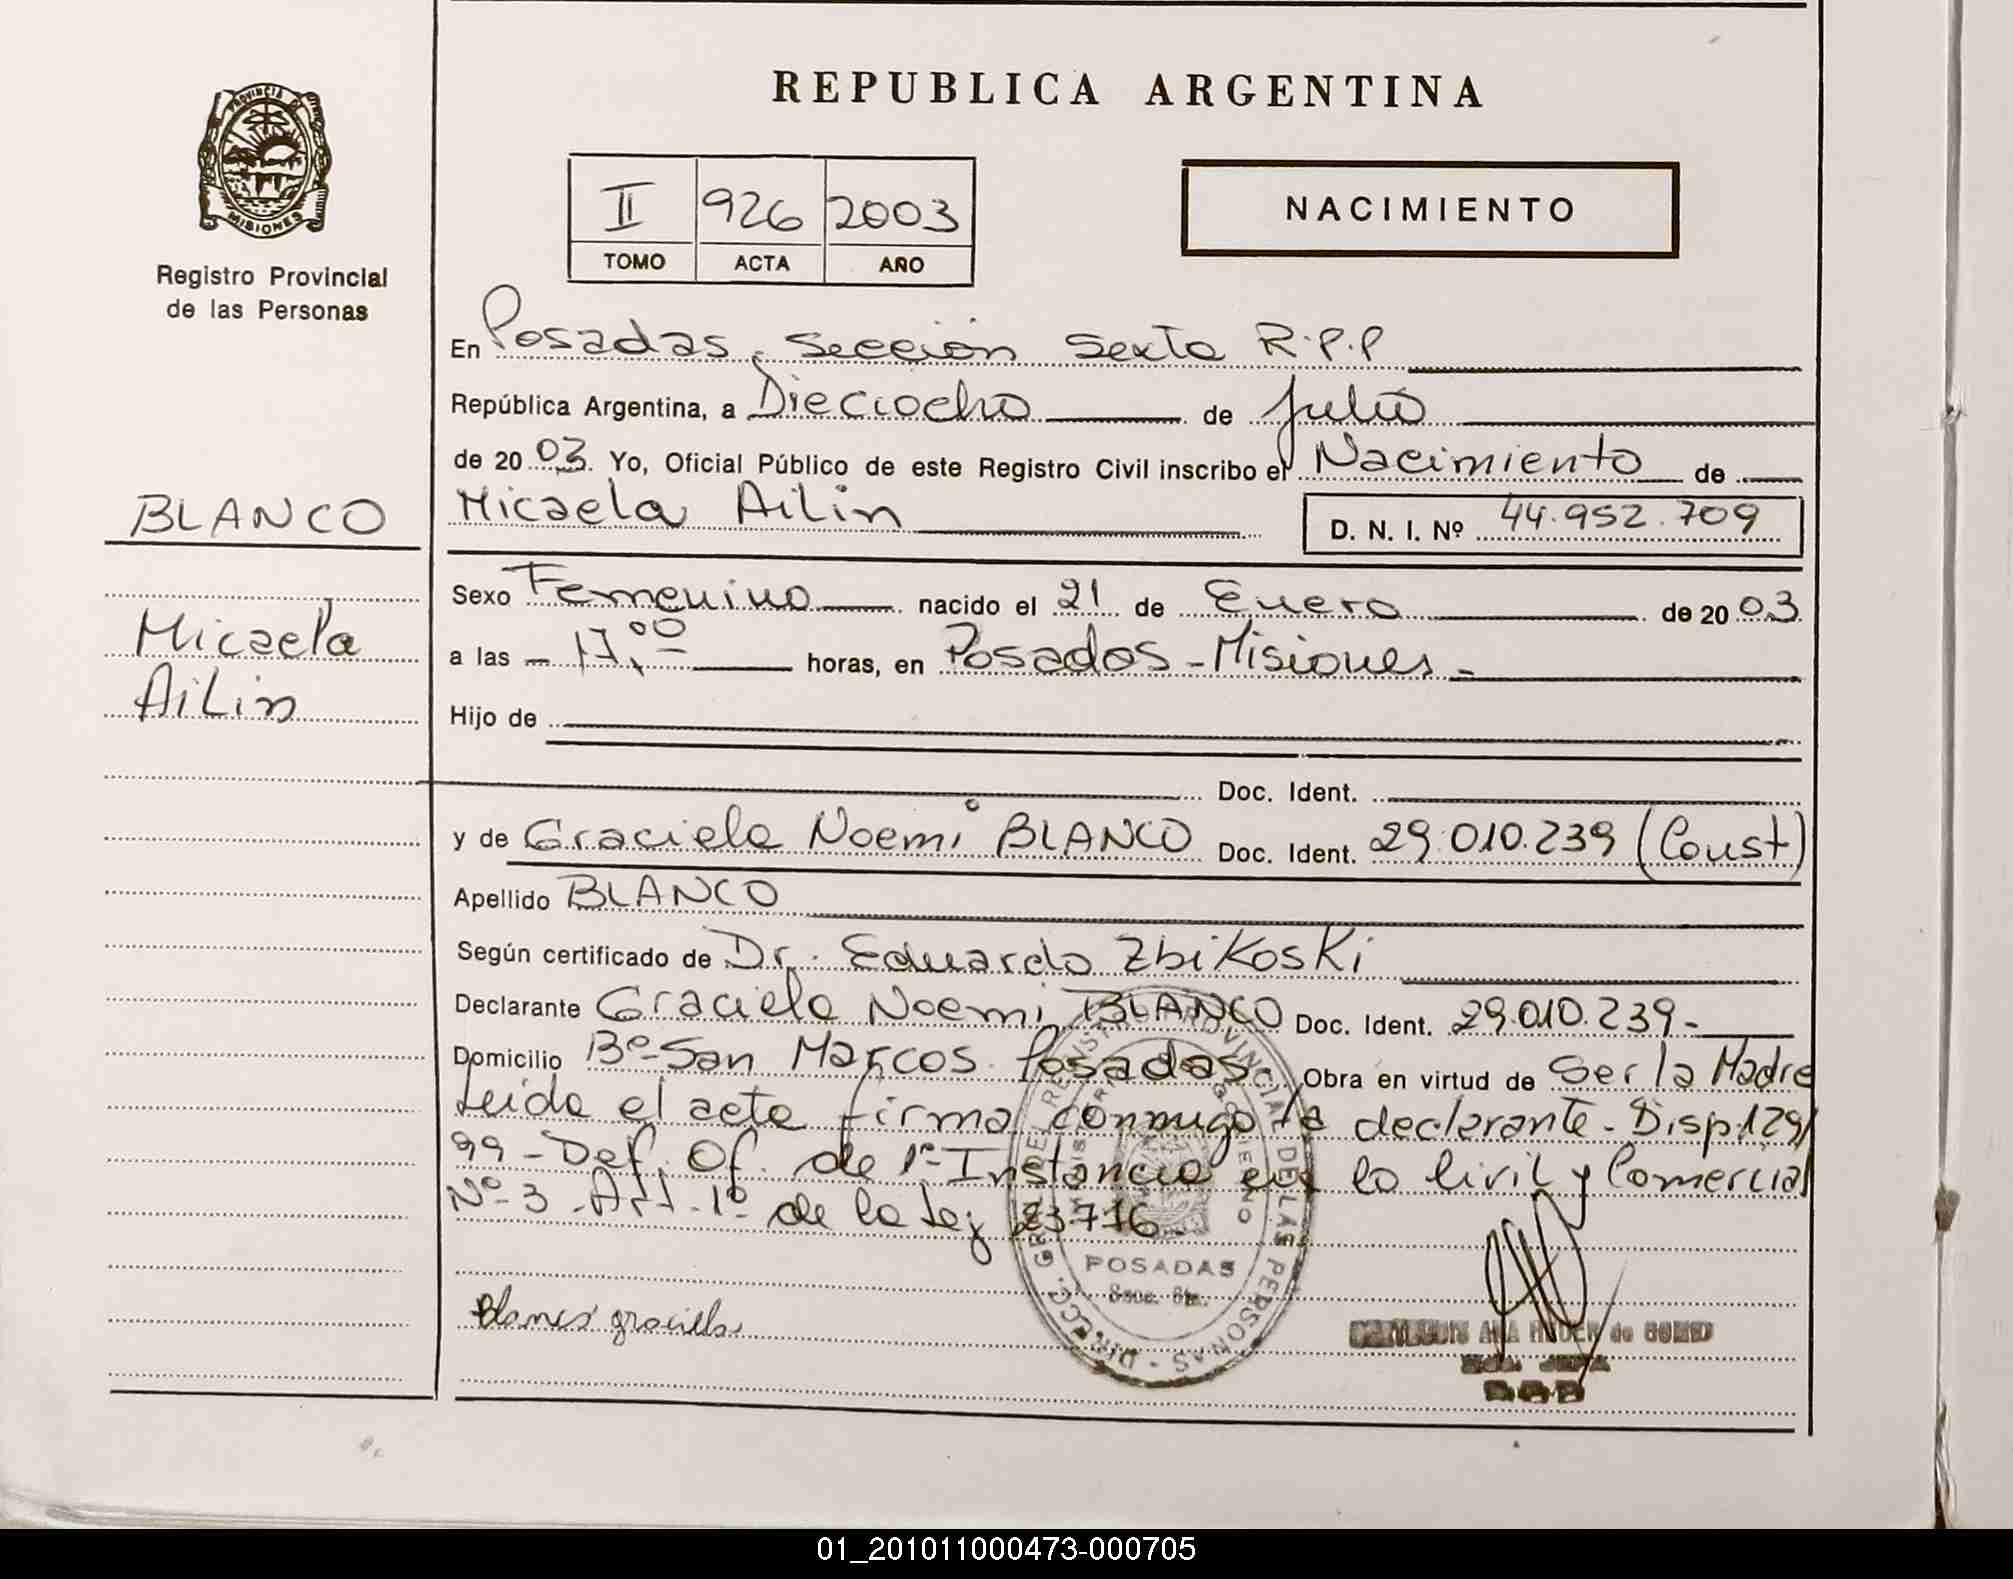 REPUBLICA ARGENTINA
PROVINCIA DE
MISIONES
Registro Provincial
de las Personas
II 926 2003
TOMO ACTA AÑO
NACIMIENTO
En Posadas, Sección Sexta R.P.P
República Argentina, a Dieciocho de Julio
de 20 03. Yo, Oficial Público de este Registro Civil inscribo el Nacimiento de
Micaela Ailin D. N. I. Nº 44.952.709
BLANCO
Micaela
Ailin
Sexo Femenino nacido el 21 de Enero de 20 03
a las 17,00 horas, en Posadas - Misiones -
Hijo de
Doc. Ident.
y de Graciela Noemi BLANCO Doc. Ident. 29.010.239 (Const)
Apellido BLANCO
Según certificado de Dr. Eduardo Zbikoski
Declarante Graciela Noemi BLANCO Doc. Ident. 29.010.239-
Domicilio Bº San Marcos Posadas. Obra en virtud de Ser la Madre
Leida el acta firma conmigo la declarante - Disp 129/
99 - Def. Of. de 1ª Instancia en lo Civil y Comercial
Nº 3 - Art. 1º de la Ley 23776.
DIRECC. GRAL. DEL REGISTRO PROVINCIAL DE LAS PERSONAS
MINISTERIO GOBIERNO
POSADAS
Secc. 6ta.
Blanco graciela
ANA de
01_201011000473-000705